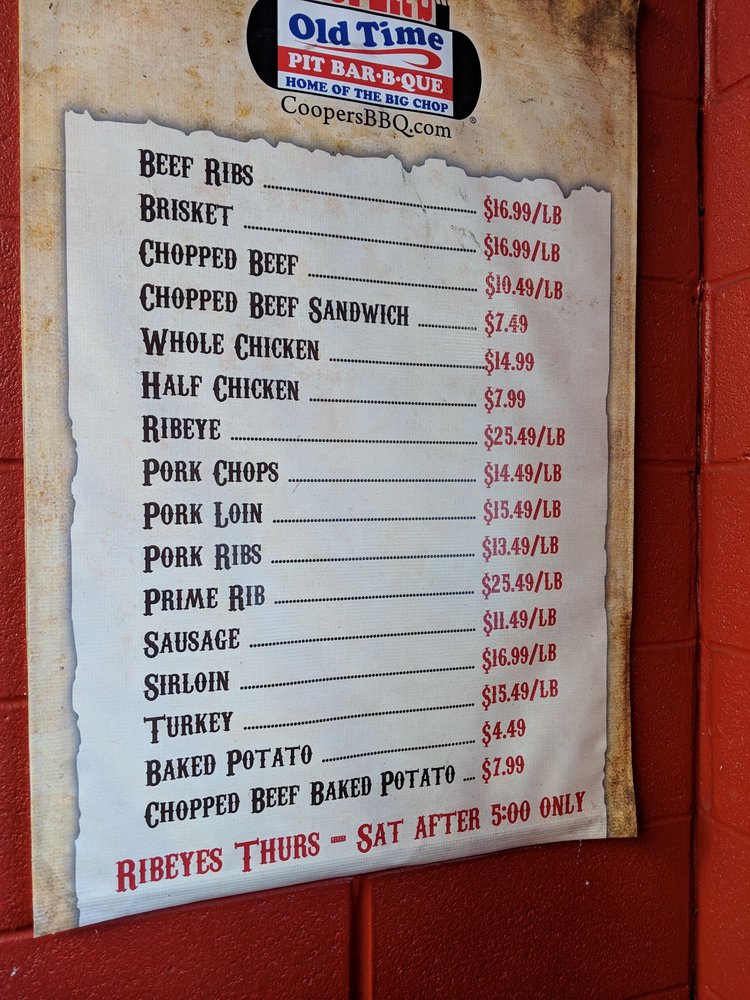 Old Time
PIT BAR·B·QUE
HOME OF THE BIG CHOP
®
CoopersBBQ.com
BEEF RIBS ........ $16.99/LB
BRISKET ........ $16.99/LB
CHOPPED BEEF ........ $10.49/LB
CHOPPED BEEF SANDWICH ........ $7.49
WHOLE CHICKEN ........ $14.99
HALF CHICKEN ........ $7.99
RIBEYE ........ $25.49/LB
PORK CHOPS ........ $14.49/LB
PORK LOIN ........ $15.49/LB
PORK RIBS ........ $13.49/LB
PRIME RIB ........ $25.49/LB
SAUSAGE ........ $11.49/LB
SIRLOIN ........ $16.99/LB
TURKEY ........ $15.49/LB
BAKED POTATO ........ $4.49
CHOPPED BEEF BAKED POTATO ... $7.99
RIBEYES THURS - SAT AFTER 5:00 ONLY